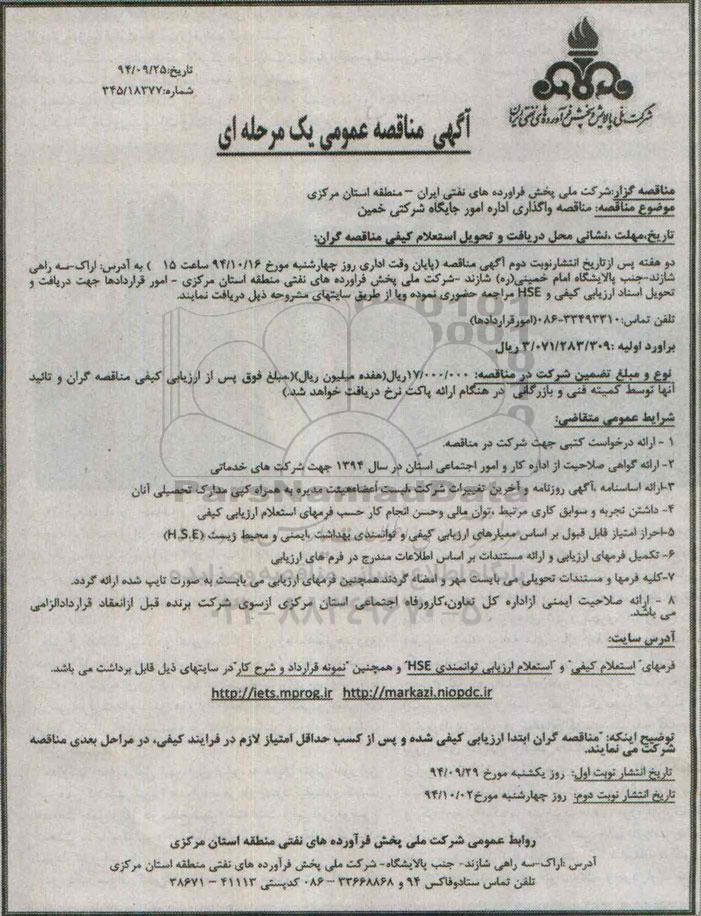 شرکت ملی پالایش و پخش فرآورده‌های نفتی ایران
تاریخ:۹۴/۰۹/۲۵
شماره:۳۴۵/۱۸۳۷۷
آگهی مناقصه عمومی یک مرحله ای
مناقصه گزار:شرکت ملی پخش فراورده های نفتی ایران – منطقه استان مرکزی
موضوع مناقصه: مناقصه واگذاری اداره امور جایگاه شرکتی خمین
تاریخ،مهلت ،نشانی محل دریافت و تحویل استعلام کیفی مناقصه گران:
دو هفته پس ازتاریخ انتشارنوبت دوم آگهی مناقصه (پایان وقت اداری روز چهارشنبه مورخ ۹۴/۱۰/۱۶ ساعت ۱۵ ) به آدرس: اراک-سه راهی
شازند-جنب پالایشگاه امام خمینی(ره) شازند -شرکت ملی پخش فراورده های نفتی منطقه استان مرکزی - امور قراردادها جهت دریافت و
تحویل اسناد ارزیابی کیفی و HSE مراجعه حضوری نموده ویا از طریق سایتهای مشروحه ذیل دریافت نمایند.
تلفن تماس:۳۳۴۹۳۳۱۰-۰۸۶(امورقراردادها)
براورد اولیه :۳/۰۷۱/۲۸۳/۳۰۹ ریال
نوع و مبلغ تضمین شرکت در مناقصه: ۱۷/۰۰۰/۰۰۰ریال(هفده میلیون ریال)(مبلغ فوق پس از ارزیابی کیفی مناقصه گران و تائید
آنها توسط کمیته فنی و بازرگانی در هنگام ارائه پاکت نرخ دریافت خواهد شد.)
شرایط عمومی متقاضی:
۱ - ارائه درخواست کتبی جهت شرکت در مناقصه.
۲- ارائه گواهی صلاحیت از اداره کار و امور اجتماعی استان در سال ۱۳۹۴ جهت شرکت های خدماتی
۳-ارائه اساسنامه ،آگهی روزنامه و آخرین تغییرات شرکت ،لیست اعضاءهیئت مدیره به همراه کپی مدارک تحصیلی آنان
۴- داشتن تجربه و سوابق کاری مرتبط ،توان مالی وحسن انجام کار حسب فرمهای استعلام ارزیابی کیفی
۵-احراز امتیاز قابل قبول بر اساس معیارهای ارزیابی کیفی و توانمندی بهداشت ،ایمنی و محیط زیست (H.S.E)
۶- تکمیل فرمهای ارزیابی و ارائه مستندات بر اساس اطلاعات مندرج در فرم های ارزیابی
۷-کلیه فرمها و مستندات تحویلی می بایست مهر و امضاء گردند.همچنین فرمهای ارزیابی می بایست به صورت تایپ شده ارائه گردد.
۸ - ارائه صلاحیت ایمنی ازاداره کل تعاون،کارورفاه اجتماعی استان مرکزی ازسوی شرکت برنده قبل ازانعقاد قراردادالزامی
می باشد.
آدرس سایت:
فرمهای" استعلام کیفی" و "استعلام ارزیابی توانمندی HSE" و همچنین "نمونه قرارداد و شرح کار"در سایتهای ذیل قابل برداشت می باشد.
http://iets.mprog.ir http://markazi.niopdc.ir
توضیح اینکه: "مناقصه گران ابتدا ارزیابی کیفی شده و پس از کسب حداقل امتیاز لازم در فرایند کیفی، در مراحل بعدی مناقصه
شرکت می نمایند.
تاریخ انتشار نوبت اول: روز یکشنبه مورخ ۹۴/۰۹/۲۹
تاریخ انتشار نوبت دوم: روز چهارشنبه مورخ۹۴/۱۰/۰۲
روابط عمومی شرکت ملی پخش فرآورده های نفتی منطقه استان مرکزی
آدرس :اراک-سه راهی شازند- جنب پالایشگاه- شرکت ملی پخش فرآورده های نفتی منطقه استان مرکزی
تلفن تماس ستادوفاکس ۹۴ و ۳۳۶۶۸۸۶۸ – ۰۸۶ کدپستی ۴۱۱۱۳ – ۳۸۶۷۱